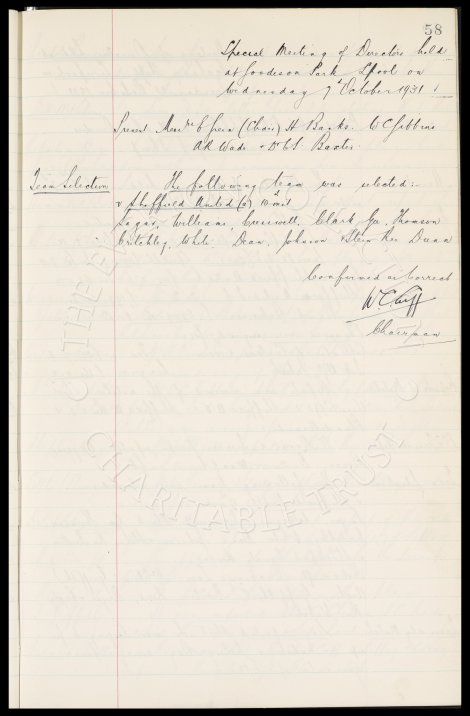 58
Special Meeting of Directors held
at Goodison Park L'pool on
Wednesday 7th October 1931
Present Messrs E Green (Chair) H Banks. W C Gibbins
A R Wade & Dr C S Baxter
Team Selection
The following team was selected:-
v Sheffield United (a) 10th inst
Sagar, Williams, Cresswell, Clark Gee, Thomson
Critchley, White. Dean, Johnson & Stein Res Dunn
Confirmed as Correct
W C Cuff
Chairman
THE
CHARITABLE TRUST